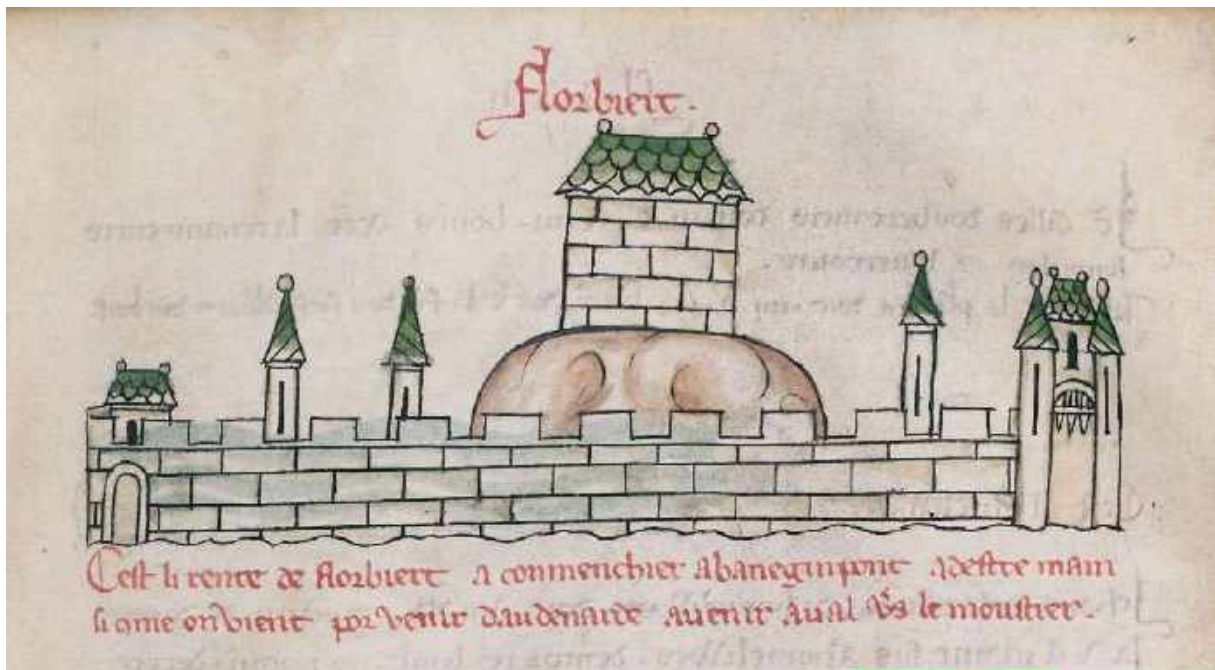 Florbierc.
Cest li rente de florbierc a conmenchier a destre main
si ꝯme on vient por venir daudenarde a venir aval vs le moustier.